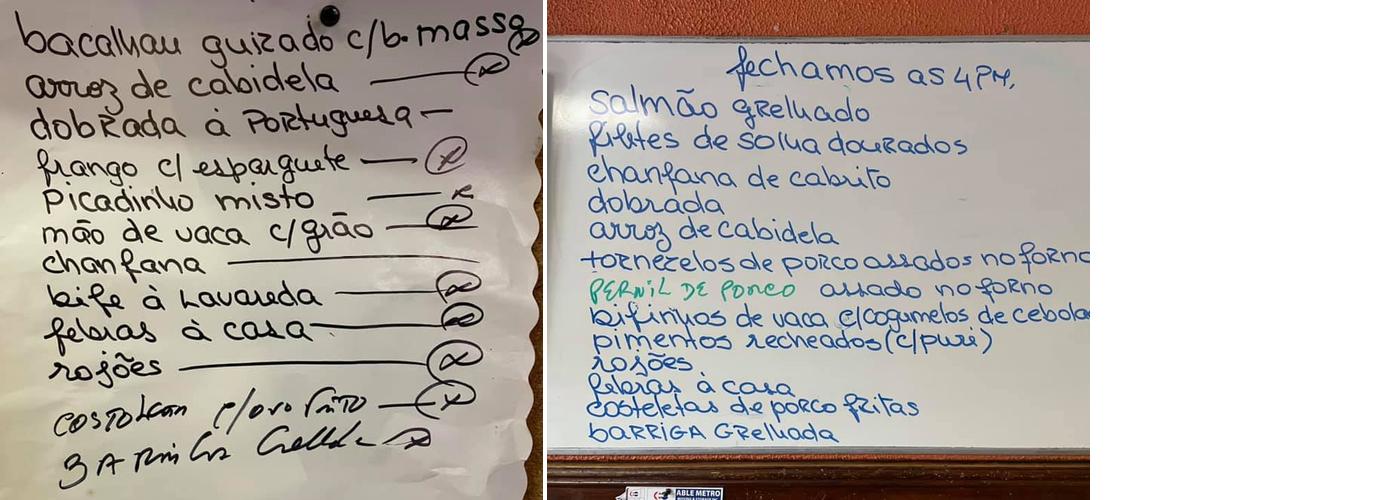 bacalhau guizado c/b. massa
arroz de cabidela
dobrada à Portuguesa
frango c/ esparguete
Picadinho misto
mão de vaca c/grão
chanfana
bife à Lavareda
febras à casa
rojões
c/ovo
fechamos as 4 PM.
salmão grelhado
filetes de solha dourados
chanfana de cabrito
dobrada
arroz de cabidela
tornezelos de porco assados no forno
PERNIL DE PORCO assado no forno
bifinhos de vaca c/cogumelos de cebola
pimentos recheados (c/puré)
rojões.
febras à casa
costeletas de porco fritas
barriga grelhada
ABLE METRO